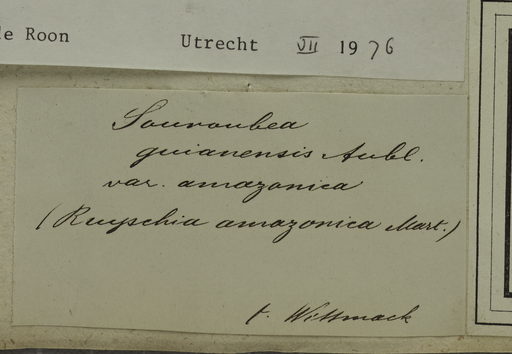 de Roon Utrecht VII 1976
Souroubea
guianensis Aubl.
var. amazonica
(Ruyschia amazonica Mart.)
t. Wittmack